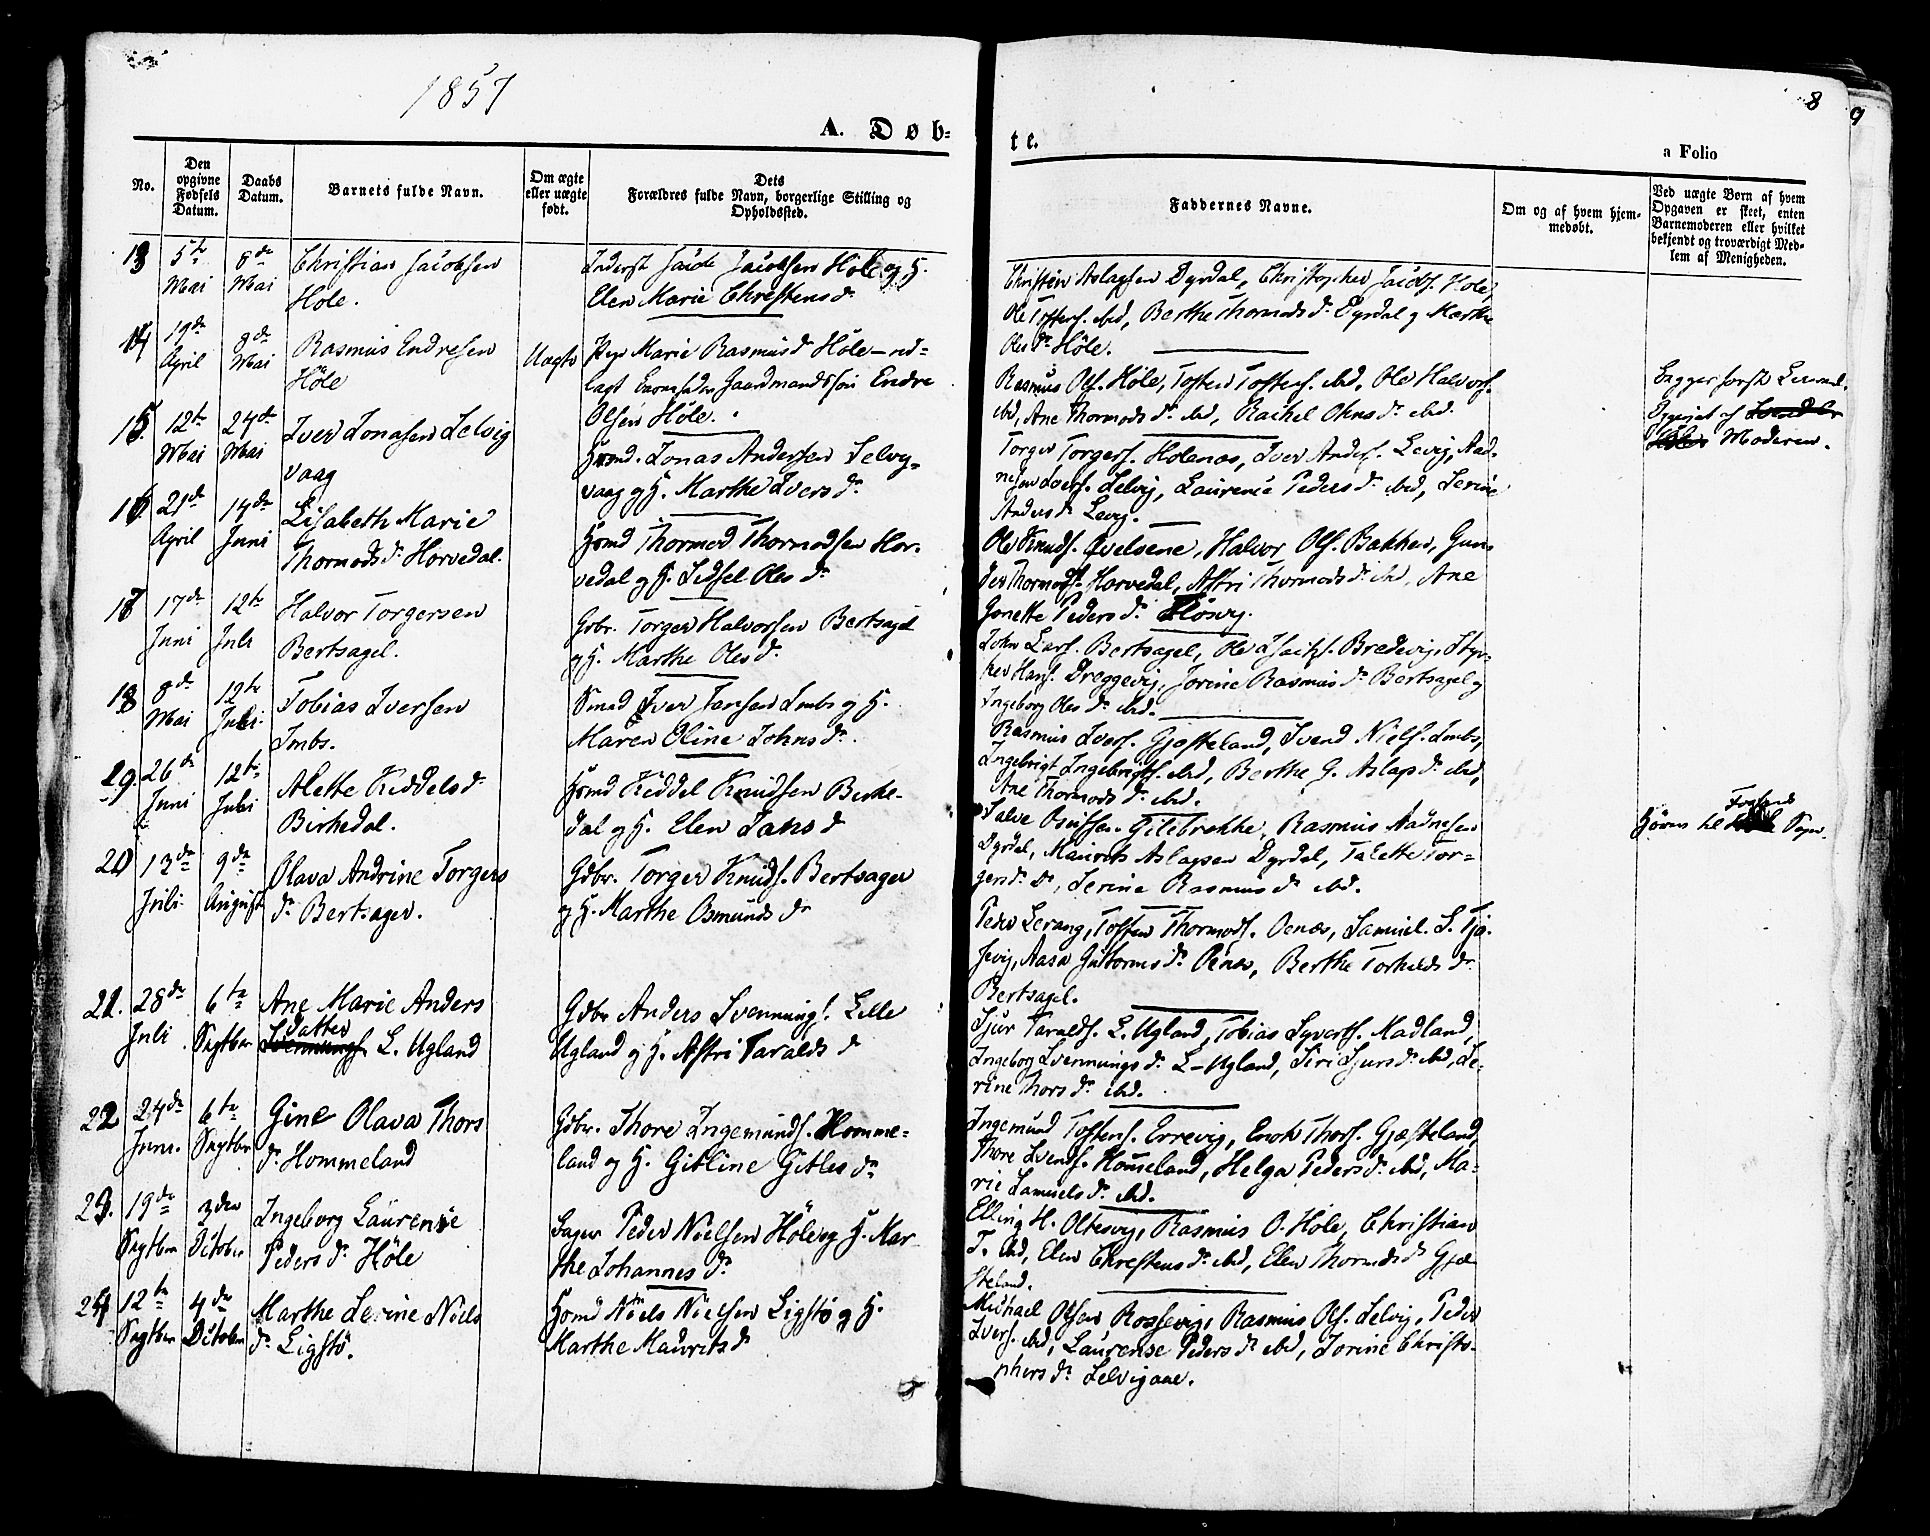 1857
8
9
A. Døb-
te.
a Folio
No.
Den opgivne Fødsels Datum.
Daabs Datum.
Barnets fulde Navn.
Om ægte eller uægte født.
Dets Forældres fulde Navn, borgerlige Stilling og Opholdssted.
Faddernes Navne.
Om og af hvem hjemmedøbt.
Ved uægte Børn af hvem Opgaven er skeet, enten Barnemoderen eller hvilket bekjendt og troværdigt Medlem af Menigheden.
13
5te Mai
8de Mai
Christian Jacobsen
Hole.
Inderst Jacob Jacobsen Hole og H.
Elen Marie Chrestensdr
Christen Aslagsen Dyrdal, Christopher Jacobs. Hole,
Ole Tostens. ibid, Berthe Thormodsdr Dyrdal g Marthe
Olesdr Høle.
14
19de April
8de Mai
Rasmus Endresen
Høle
Uægte
Pige Marie Rasmusdr Høle - ud-
lagt Barnefader Gaardmandssøn Endre
Olsen Høle.
Rasmus Ols. Høle, Tosten Tostens. ibid, Ole Halvors.
ibid, Ane Thormodsdr ibid, Rachel Ohnsdr ibid.
Moderen.
15
12te Mai
24de Mai
Iver Jonasen Selvig
vaag
Hsmd. Jonas Andersen Selvig-
vaag g H. Marthe Iversdr
Torger Torgers. Holenæs, Iver Anders. Levig, Aad-
nesen Ivers. Selvig, Laurence Pedersdr ibid, Serine
Andersdr Levig.
16
21de April
14de Juni
Lisabeth Marie
Thormodsdr Horvedal.
Hsmd Thormod Thormodsen Hor-
vedal g H. Sidsel Olesdr
Ole Knuds. Qvelsene, Halvor Ols. Bakken, Gun-
der Thormods. Horvedal, Astri Thormodsdr ibid, Ane
Jonette Pedersdr Kløvig.
17
17de Juni
12te Juli
Halvor Torgersen
Bertsagel.
Gbr. Torger Halvorsen Bertsagel
g H. Marthe Olesdr
John Lars. Bertsagel, Ole Isachs. Bredevig, Styr-
ker Hans. Dreggevig, Jorine Rasmusdr Bertsagel g
Ingeborg Olesdr ibid.
18
8de Mai
12te Juli
Tobias Iversen
Imbs.
Smed Iver Hansen Imbs g H.
Maren Oline Johnsdr
Rasmus Ivers. Gjesteland, Svend Niels. Imbs,
Ingebrigt Ingebrigts. ibid, Berthe G. Aslagsdr ibid,
Ane Thormodsdr ibid.
19.
26de Juni
12te Juli
Alette Kiddelsdr
Birkedal.
Hsmd Kiddel Knudsen Birke-
dal g H. Elen Jansdr
Salve Osufsen Gilebrekke, Rasmus Aadnesen
Dyrdal, Maurits Aslagsen Dyrdal, Talette Tor-
gersdr Do, Serine Rasmusdr ibid.
Hører til Fossands Sogn.
20
13de Juli
9de August
Olava Andrine Torgers
dr Bertsagen.
Gdbr. Torger Knuds. Bertsagen
g H. Marthe Osmundsdr
Peder Lerang, Tosten Thormods. Oenæs, Samuel S. Tjø-
sevig, Aasa Guttormsdr Oenes, Berthe Torkildsdr
Bertsagel.
21.
28de Juli
6te Septbr
Ane Marie Anders
datter L. Ugland
Gdbr Anders Svennings. Lille
Ugland g H. Astri Taraldsdr
Sjur Taralds. L. Ugland, Tobias Syverts. Madland,
Ingeborg Svenningsdr L-Ugland, Siri Sjursdr ibid, Se-
rine Thorsdr ibid.
22
24de Juni.
6te Septbr
Gine Olava Thors
dr Hommeland
Gdbr. Thore Ingemunds. Homme-
land og H. Gitline Gitlesdr
Ingemund Tostens. Errevig, Enok Thors. Gjesteland,
Thore Svends. Hommeland, Helga Pedersdr ibid, Ma-
rie Samuelsdr ibid.
23.
19de Septbr
3den October
Ingeborg Laurense
Pedersdr Høle
Bager Peder Nielsen Høle og H. Mar-
the Johannesdr
Elling H. Oltesvig, Rasmus O. Hole, Christian
T. ibid, Elen Chrestensdr ibid, Elen Thormodsdr Gje-
steland.
24
12te Septbr
4de October
Marthe Serine Niels
dr Ligstø.
Hsmd Niels Nielsen Ligstø g H.
Marthe Mauritsdr
Michael Olsen Rossevig, Rasmus Ols. Selvig, Peder
Ivers. ibid, Laurense Pedersdr ibid, Jorine Christo-
phersdr Selvigaae.